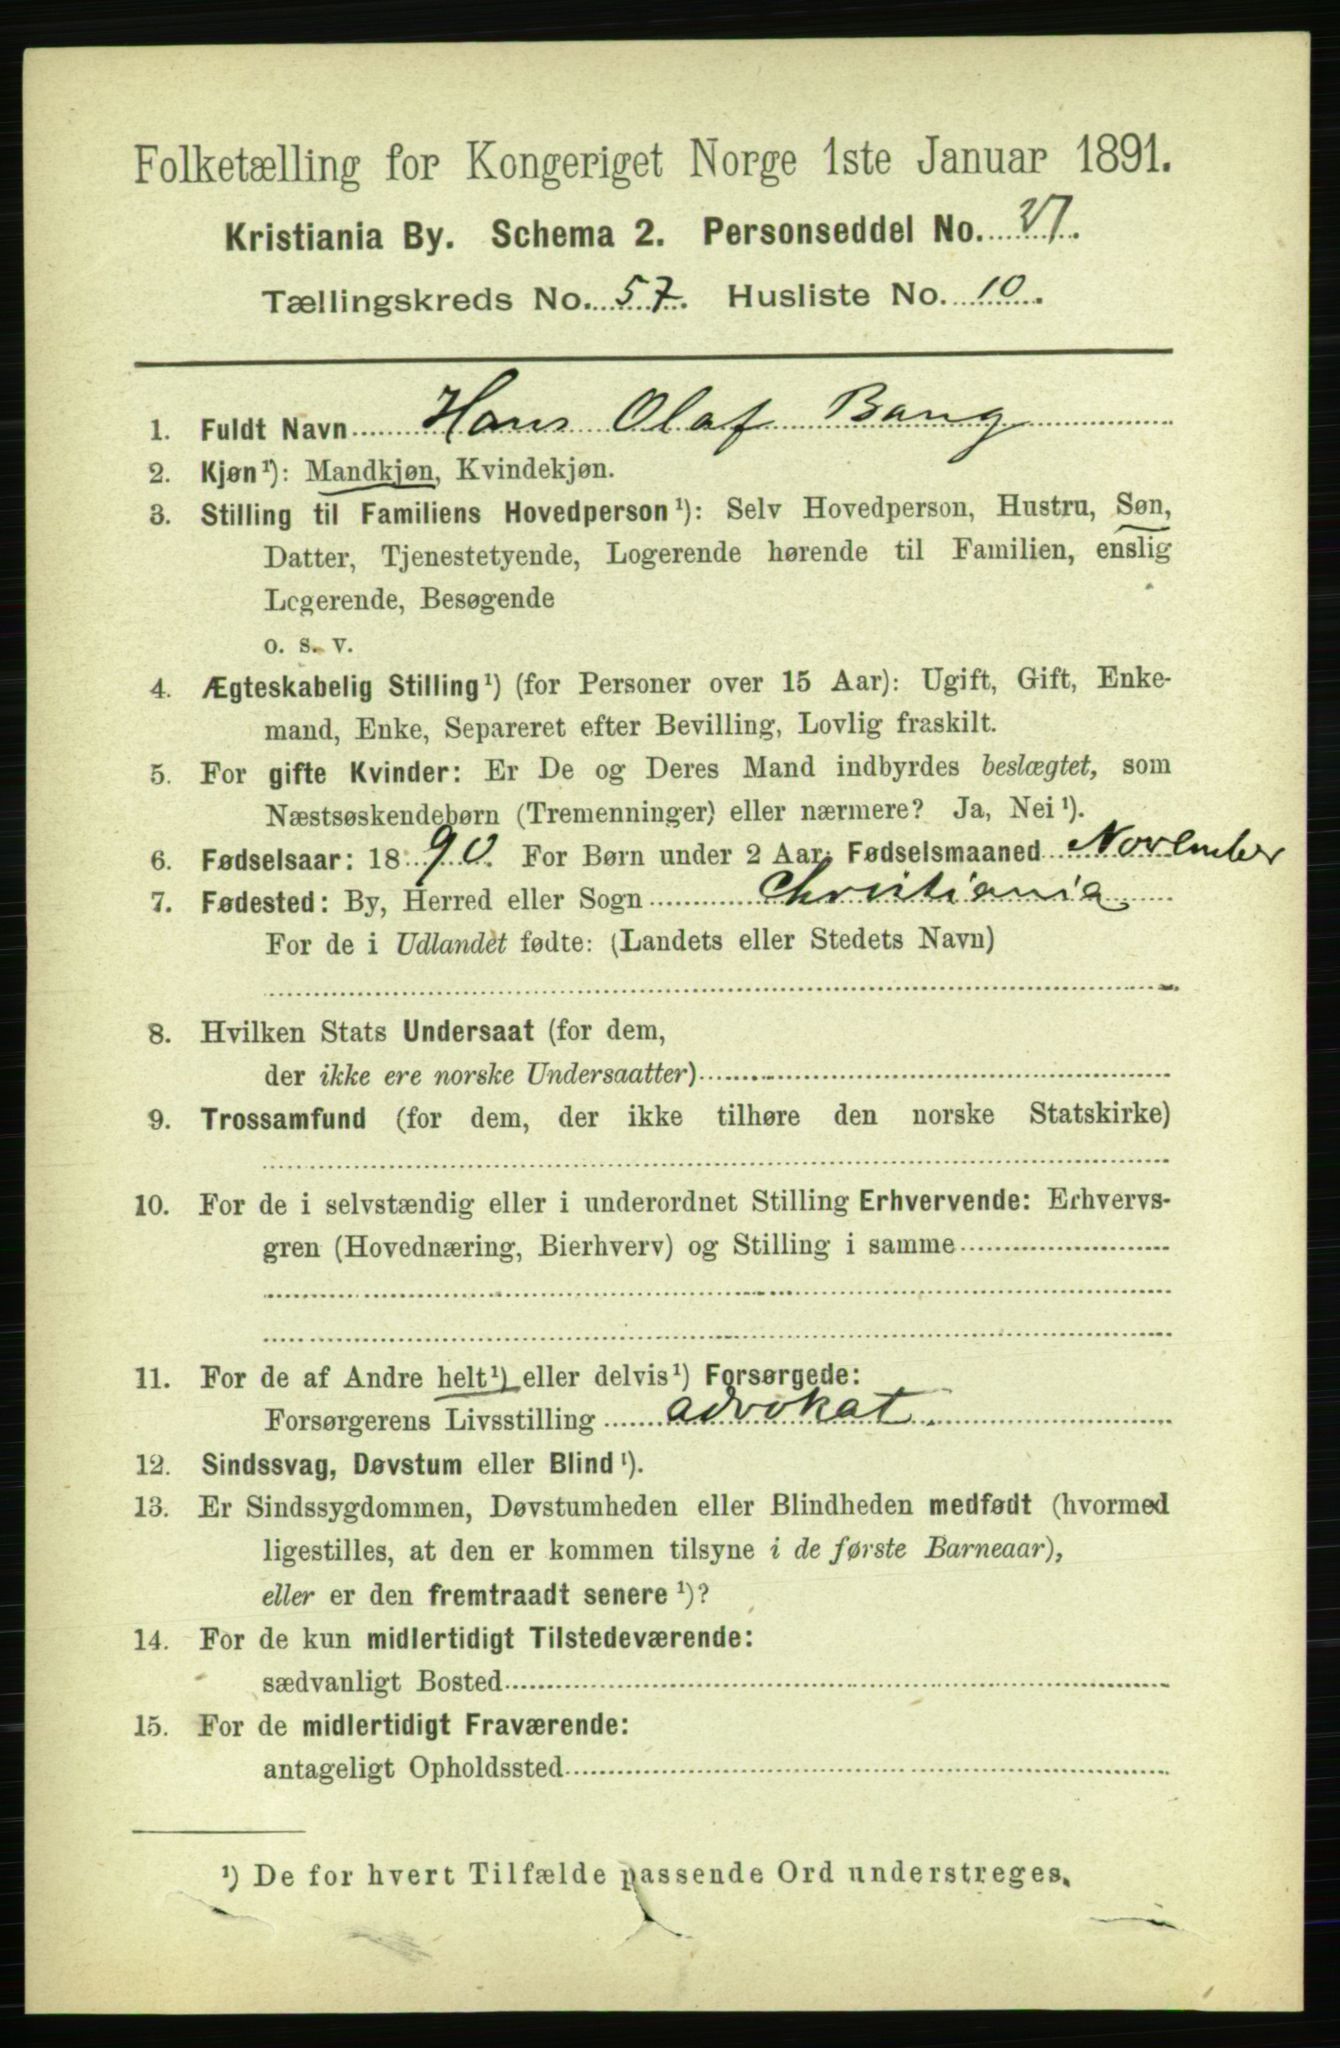 Folketælling for Kongeriget Norge 1ste Januar 1891.
Kristiania By. Schema 2. Personseddel No.
Tællingskreds No. 57. Husliste No. 10.
1. Fuldt Navn Hans Olaf Bang
2. Kjøn¹): Mandkjøn, Kvindekjøn.
3. Stilling til Familiens Hovedperson¹): Selv Hovedperson, Hustru, Søn,
Datter, Tjenestetyende, Logerende hørende til Familien, enslig
Logerende, Besøgende
o. s. v.
4. Ægteskabelig Stilling¹) (for Personer over 15 Aar): Ugift, Gift, Enke-
mand, Enke, Separeret efter Bevilling, Lovlig fraskilt.
5. For gifte Kvinder: Er De og Deres Mand indbyrdes beslægtet, som
Næstsøskendebørn (Tremenninger) eller nærmere? Ja, Nei¹).
6. Fødselsaar: 1890. For Børn under 2 Aar: Fødselsmaaned November
7. Fødested: By, Herred eller Sogn Christiania
For de i Udlandet fødte: (Landets eller Stedets Navn)
8. Hvilken Stats Undersaat (for dem,
der ikke ere norske Undersaatter)
9. Trossamfund (for dem, der ikke tilhøre den norske Statskirke)
10. For de i selvstændig eller i underordnet Stilling Erhvervende: Erhvervs-
gren (Hovednæring, Bierhverv) og Stilling i samme
11. For de af Andre helt¹) eller delvis¹) Forsørgede:
Forsørgerens Livsstilling advokat
12. Sindssvag, Døvstum eller Blind¹).
13. Er Sindssygdommen, Døvstumheden eller Blindheden medfødt (hvormed
ligestilles, at den er kommen tilsyne i de første Barneaar),
eller er den fremtraadt senere¹)?
14. For de kun midlertidigt Tilstedeværende:
sædvanligt Bosted
15. For de midlertidigt Fraværende:
antageligt Opholdssted
¹) De for hvert Tilfælde passende Ord understreges.